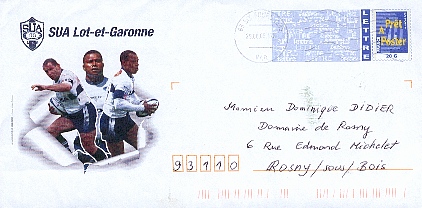 SUA Lot-et-Garonne
SUA
LETTRE
Prêt
A
Poster
20 G
Monsieur Dominique DIDIER
Domaine de Rosny
6 Rue Edmond Michelet
93110 ROSNY/sous/Bois